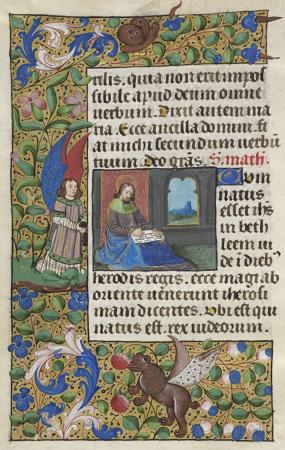 tilis. quia non erit impos
sibile apud deum omne
uerbum. Dixit autem ma
ria. Ecce ancilla domini. fi
at michi secundum uerbũ
tuum. Deo grãs. S. math.
Cum
natus
esset ihs
in beth
leem iu
de i dieb᷒
herodis regis. ecce magi ab
oriente uenerunt iherosoli
mam dicentes. Ubi est qui
natus est. rex iudeorum.